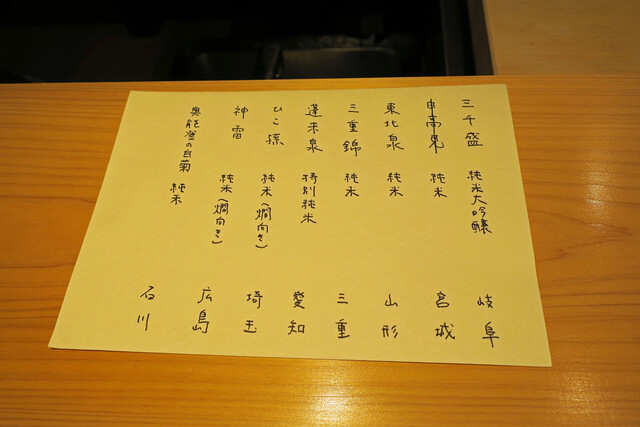 三千盛 純米大吟醸 岐阜
日高見 純米 宮城
東北泉 純米 山形
三重錦 純米 三重
蓬莱泉 特別純米 愛知
ひこ孫 純米(燗向き) 埼玉
神雷 純米(燗向き) 広島
奥能登の白菊 純米 石川